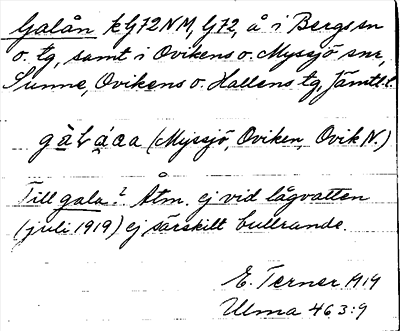 Galån kG72NM, G72, å i Bergs sn
o. tg, samt i Ovikens o. Myssjö snr,
Sunne, Ovikens o. Hallens tg, Jämtl.
(Myssjö, Oviken, Ovik N.)
Till gala? Åtm. ej vid lågvatten
(juli 1919) ej särskilt bullrande.
E. Terner 1919
Ulma 463:9